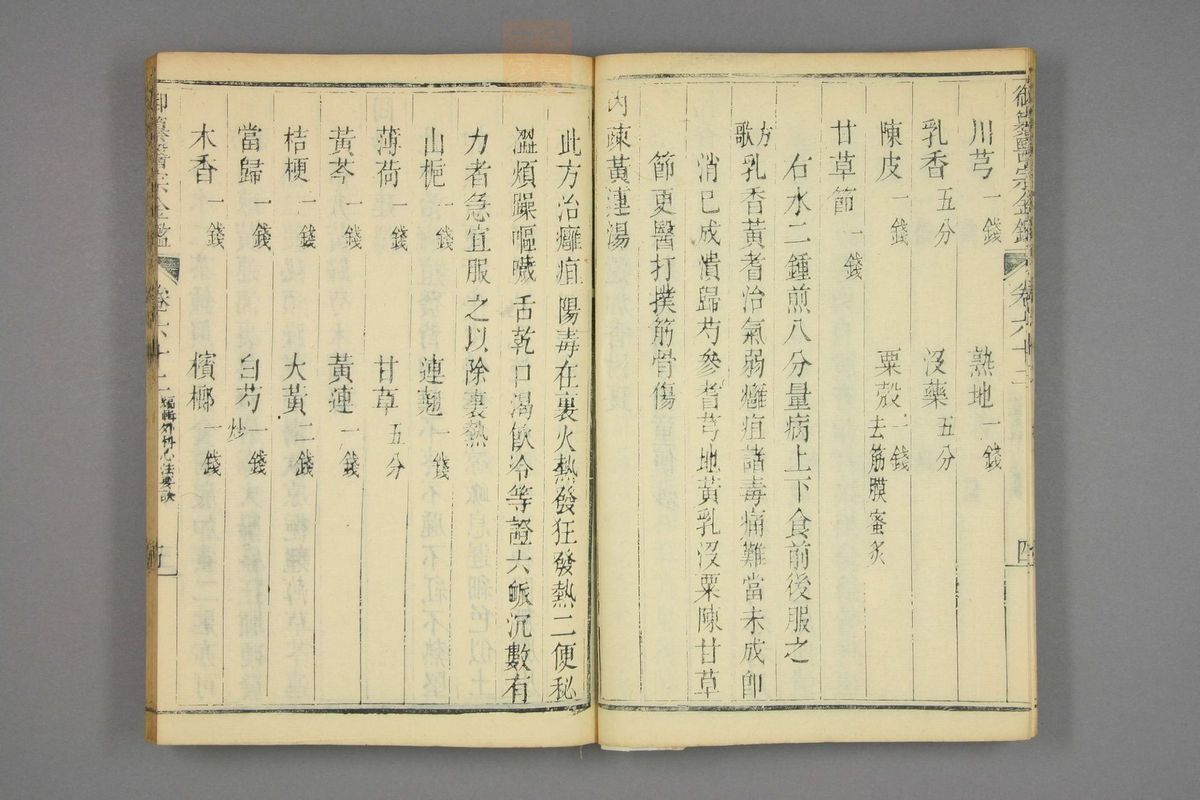 御纂醫宗金鑑 卷六十二 四
川芎一錢 熟地一錢
乳香五分 沒藥五分
陳皮一錢 粟殼二錢去筋膜蜜炙
甘草節一錢
右水二鍾煎八分量病上下食前後服之
方歌 乳香黃耆治氣弱癰疽諸毒痛難當未成卽
消已成潰歸芍參耆芎地黃乳沒粟陳甘草
節更醫打撲筋骨傷
內疎黃連湯
此方治癰疽陽毒在裏火熱發狂發熱二便秘
澀煩躁嘔噦舌乾口渴飲冷等證六脈沉數有
力者急宜服之以除裏熱
山梔一錢 連翹一錢
薄荷一錢 甘草五分
黃芩一錢 黃連一錢
桔梗一錢 大黃二錢
當歸一錢 白芍炒一錢
木香一錢 檳榔一錢
御纂醫宗金鑑 卷六十二 編輯外科心法要訣 五